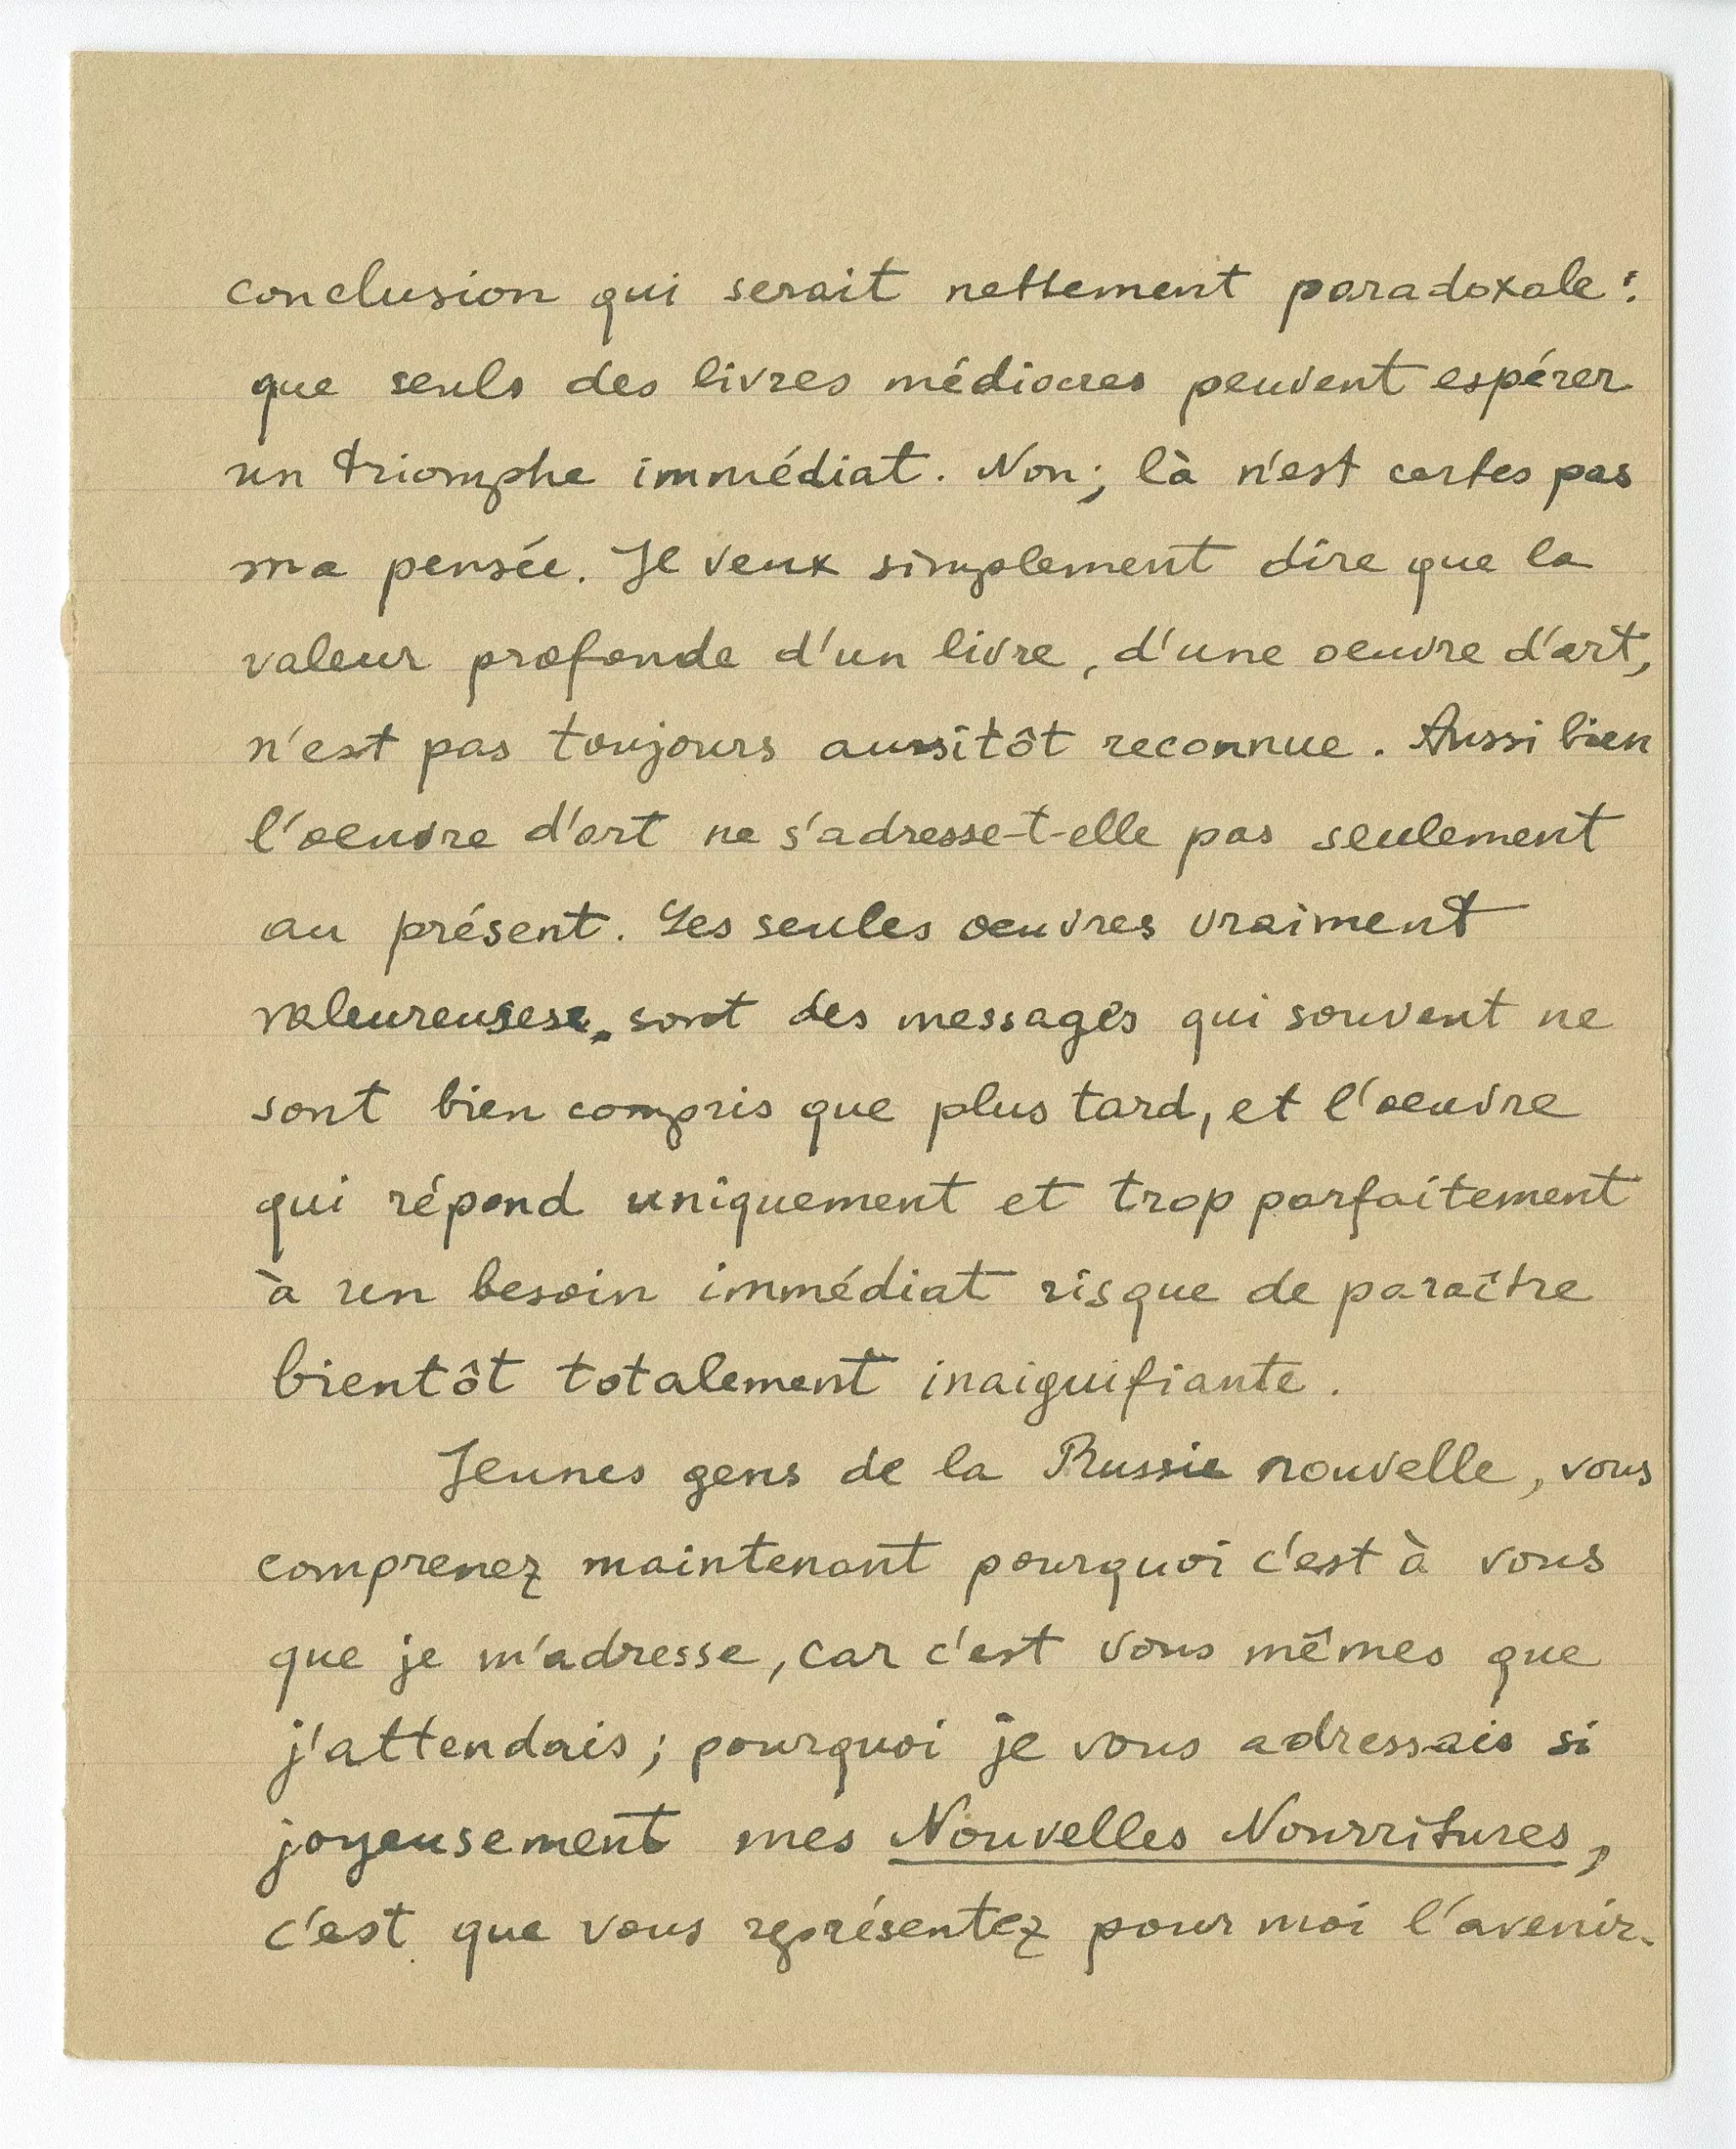 conclusion qui serait nettement paradoxale :
que seuls des livres médiocres peuvent espérer
un triomphe immédiat. Non; là n'est certes pas
ma pensée. Je veux simplement dire que la
valeur profonde d'un livre, d'une oeuvre d'art,
n'est pas toujours aussitôt reconnue. Aussi bien
l'oeuvre d'art ne s'adresse-t-elle pas seulement
au présent. Les seules oeuvres vraiment
valeureuses sont des messages qui souvent ne
sont bien compris que plus tard, et l'oeuvre
qui répond uniquement et trop parfaitement
à un besoin immédiat risque de paraître
bientôt totalement inaiguifiante.
Jeunes gens de la Russie nouvelle, vous
comprenez maintenant pourquoi c'est à vous
que je m'adresse, car c'est vous mêmes que
j'attendais ; pourquoi je vous adressais si
joyeusement mes Nouvelles Nourritures,
c'est que vous représentez pour moi l'avenir.